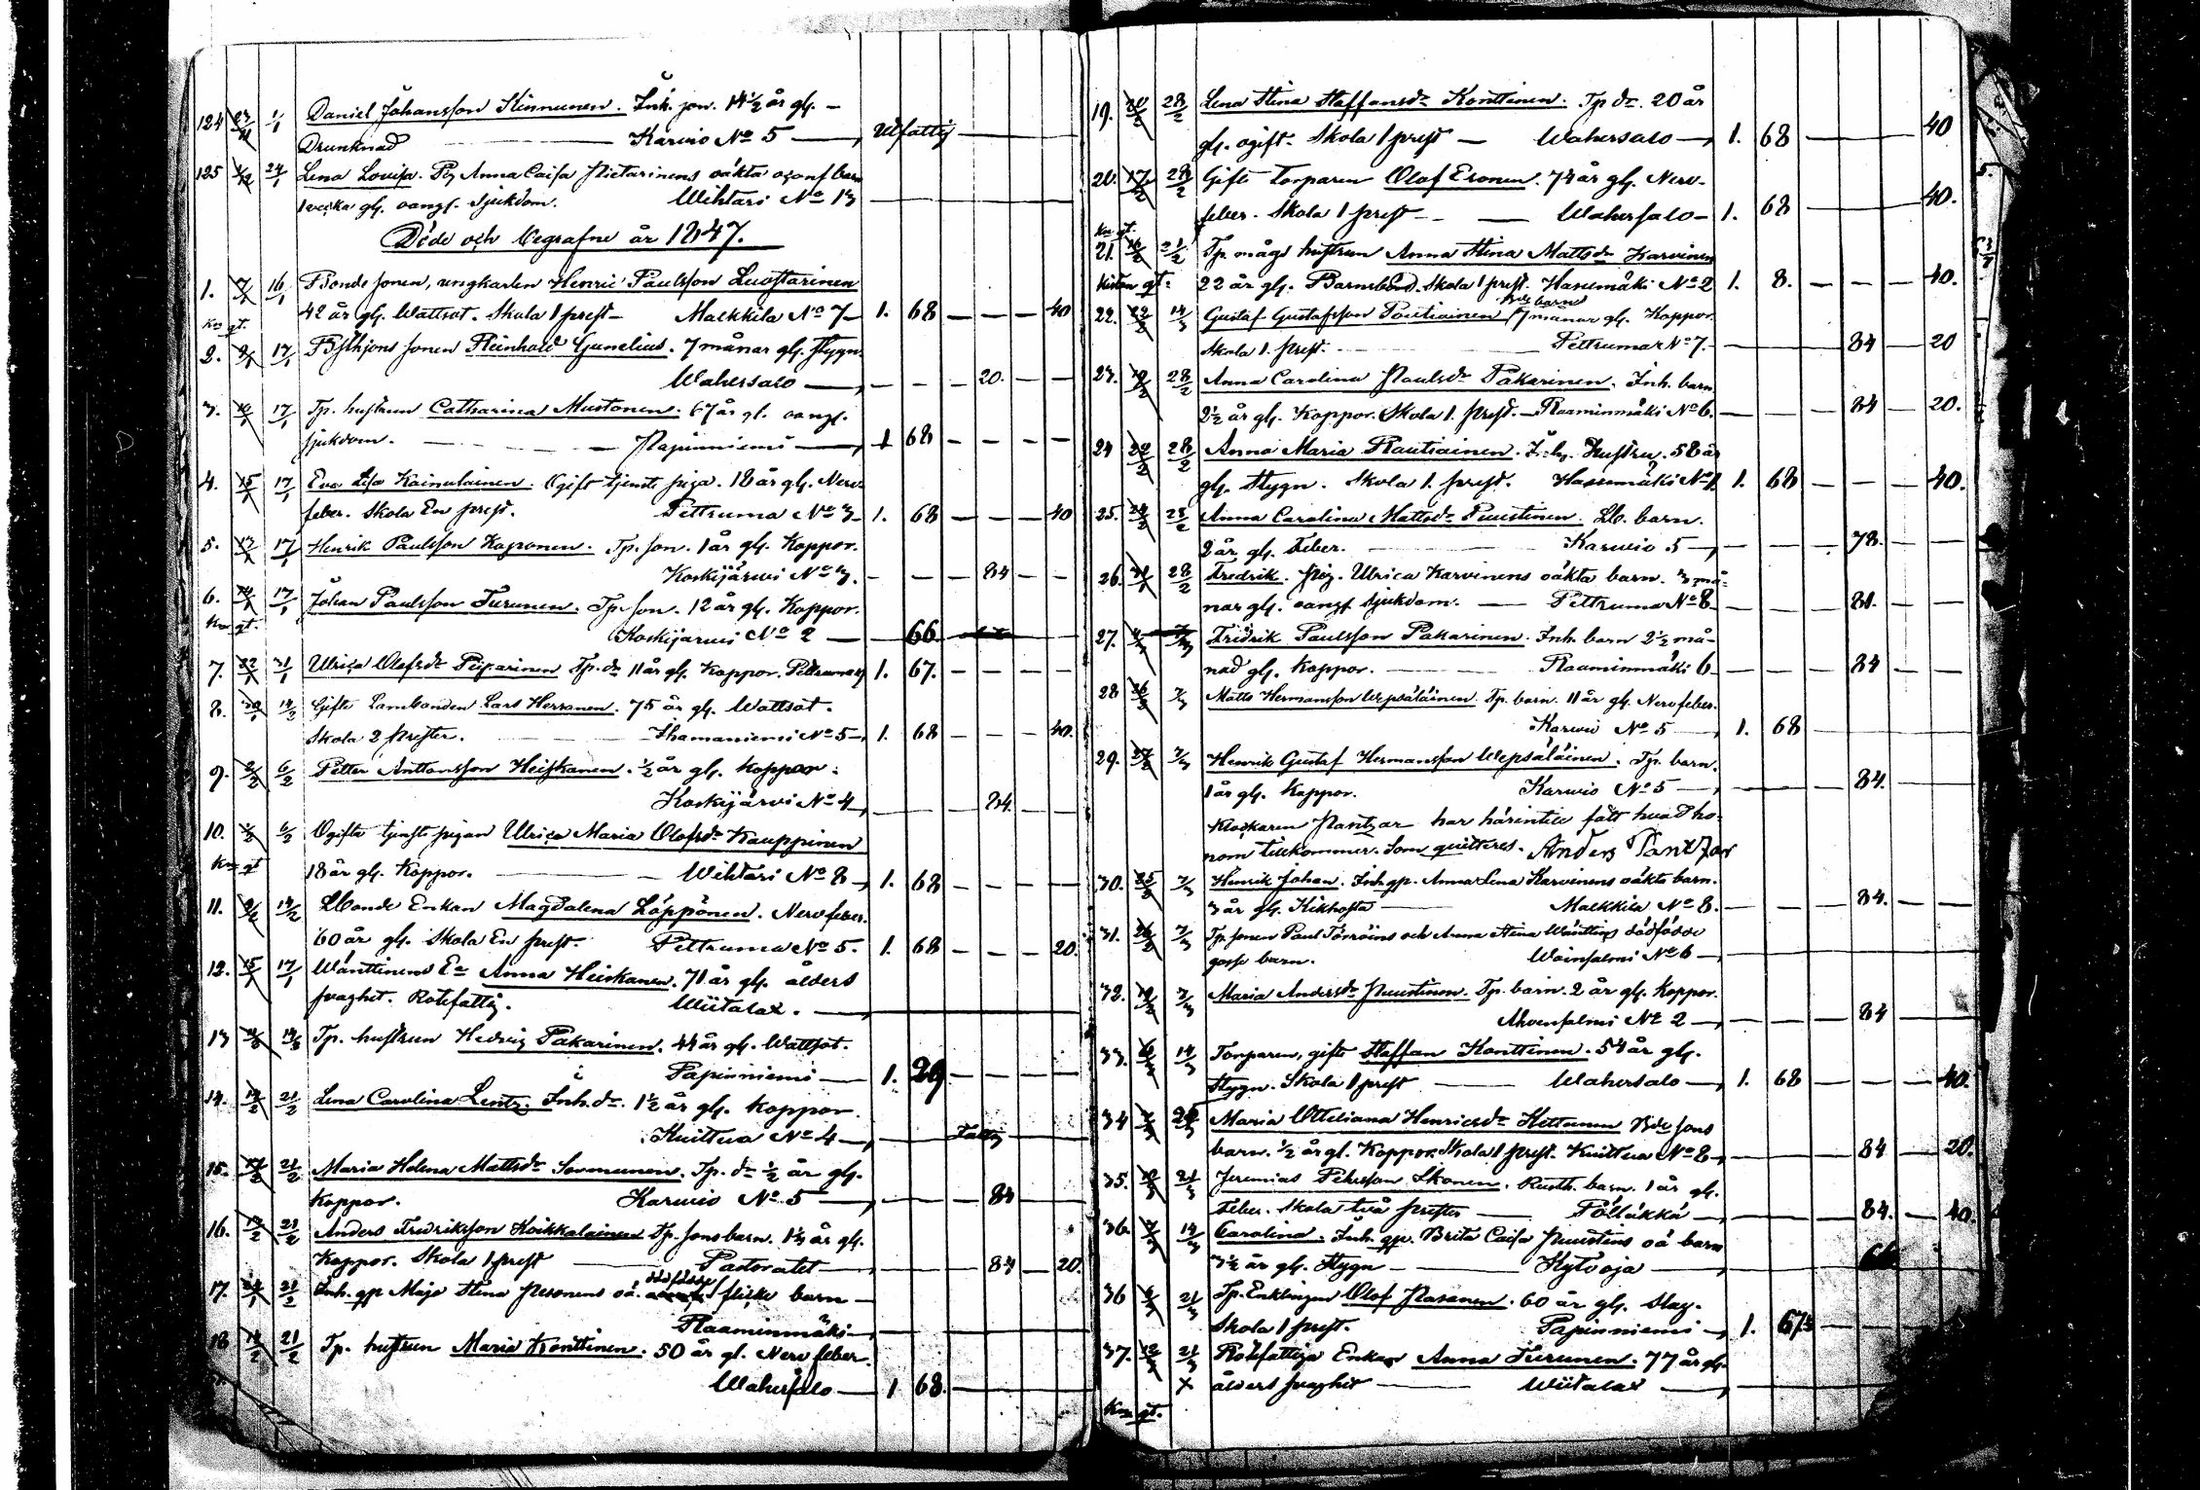 124 Daniel Johansson Kinnunen. Inh. son. 14½ år gl. –
Drunknad Karvio No 5 — Utfattig
125 1/12 24/1 Lena Lovisa. Pig. Anna Caisa Pietarinens oäkta barn
1 vecka gl. oangf. sjukdom. Wihtari No 13
Döde och begrafne år 1847.
1. 7/1 16/1 Bonde sonen, ungkarlen Henric Paulsson Luostarinen
42 år gl. Wattsot. Skola 1 prest – Malkkila No 7 – 1. 68 — — — 40
2. 17/1 Reinhold Gunelius. 7 månar gl. Stygn.
Wahersalo — — — — 20. — —
3. 17/1 Tp. hustrun Catharina Mustonen. 67 år gl. oangf.
sjukdom. — Papinniemi — 1 68 — — — —
4. 15/1 17/1 Eva Lisa Kainulainen. Ogift tjenste piga. 18 år gl. Nerv
feber. Skola En prest. Pettruma No 3 – 1. 68 — — — 40
5. 17/1 Henrik Paulsson Kaponen. Tp. son. 1 år gl. Koppor.
Koskijärwi No 3. — — — 84 — —
6. 17/1 Johan Paulsson Turunen. Tp. son. 12 år gl. Koppor.
Koskijärwi No 2 — 66
7. 22/1 31/1 Ulrica Olofsdr Tp. dr 11 år gl. Koppor. Pettruma 1. 67. — — — —
8. 30/1 14/2 Gifte Lambonden Lars Herranen. 75 år gl. Wattsot.
Skola 2 prester. Ihamaniemi No 5 – 1. 68 — — — 40.
9. 2/2 6/2 Petter Anttonsson Heiskanen. ½ år gl. koppor.
Koskijärvi No 4 — — — 84. — —
10. 6/2 Ogifta tjenste pigan Ulrica Maria Olofsdr Kauppinen
Km gt 18 år gl. Koppor. — Wihtari No 8 – 1. 68 — — — —
11. 14/2 Lbonde Enkan Magdalena Löppönen. Nervfeber.
60 år gl. Skola En prest. Pettruma No 5. 1. 68 — — — 20.
12. 15/1 17/1 Wänttinens Ea Anna Heiskanen. 71 år gl. ålders
svaghet. Rotefattig. Wiitalax. —
13 Tp. hustrun Hedvig Pakarinen. 44 år gl. Wattsot.
Papinniemi — 1. 29 — — — —
14. 14/2 21/2 Lena Carolina Lentz. Inh. dr. 1½ år gl. koppor.
Kuittua No 4 — Fattig
15. 17/2 21/2 Maria Helena Mattsdr Sormunen. Tp. dr ½ år gl.
koppor. Karwio No 5 — — — 84 — —
16. 17/2 21/2 Anders Fredriksson Koikkalainen Tp. sons barn. 1⅓ år gl.
Koppor. Skola 1 prest — Pastoratet — — — 84 — 20.
17. 21/2 Inh. qp Maja Stina Pesonens oä. dödfödde flicke barn —
Raaminmäki —
18 14/2 21/2 Tp. hustrun Maria Konttinen. 50 år gl. Nerv feber.
Wahersalo — 1 68. — — — —
19. 28/2 Lena Stina Staffansdr Konttinen. Tp dr. 20 år
gl. ogift. Skola 1 prest — Wahersalo — 1. 68 — — — 40
20. 17/2 28/2 Gifte torparen Olof Eronen. 74 år gl. Nerv-
feber. Skola 1 prest — — Wahersalo – 1. 68 — — — 40.
Km gt.
21. 21/2 Tp. mågs hustrun Anna Stina Mattsdr Karvinen
Kistan gt. 22 år gl. Barnsbörd. Skola 1 prest. Hasumäki No 2 1. 8. — — — 40.
22. 22/2 14/3 Gustaf Gustafsson Poutiainen Bde barns 7 månar gl. Koppor.
Skola 1. prest. Pettruma No 7. — — — 84 — 20
23. 28/2 Anna Carolina Paulsdr Pakarinen. Inh. barn
2½ år gl. Koppor. Skola 1. prest. – Raaminmäki No 6. — — — 84 — 20.
24 22/2 28/2 Anna Maria Rautiainen. Inh. Hustru. 58 år
gl. Stygn. Skola 1. prest. Hasumäki No 1. 1. 68 — — — 40.
25. 28/2 Anna Carolina Mattsdr Puustinen. Lb. barn.
2 år gl. Feber. — Karwio 5 — — — 78. — —
26. 28/2 Fredrik. Pig. Ulrica Karvinens oäkta barn. 3 må-
nar gl. oangf sjukdom. — Pettruma No 8 — — — 81. — —
27. Fridrik Paulsson Pakarinen. Inh. barn 2½ må-
nad gl. koppor. — Raaminmäki 6 — — — 84 — —
28 26/2 7/3 Matts Hermansson Wepsäläinen. Tp. barn. 11 år gl. Nervfeber.
Karwio No 5 — 1. 68 — — — —
29. 7/3 Henrik Gustaf Hermansson Wepsäläinen. Tp. barn.
1 år gl. Koppor. Karwio No 5 — — — 84. — —
Klockaren Pantzar har härintill fått hvad ho-
nom tillkommer. Som quitteres. Anders Pantzar
30. 7/3 Henrik Johan. Inh. qp. Anna Lena Karvinens oäkta barn.
3 år gl. Kikhosta — Malkkila No 8. — — — 84. — —
31. 7/3 Tp. sonen Paul Törröins och Anna Stina Wänttins dödfödde
gosse barn. Wainsalmi No 6 —
32. 7/3 Maria Andersdr Puustinen. Tp. barn. 2 år gl. Koppor.
Ahvensalmi No 2 — — — 84 — —
33. 14/3 Torparen, gifte Staffan Konttinen. 54 år gl.
Stygn. Skola 1 prest — Wahersalo — 1. 68 — — — 40.
34 Maria Ottiliana Henricsdr Kettunen Bde sons
barn. ½ år gl. Koppor. Skola 1 prest. Kuittua No 8 — — — 84 — 20.
35. 21/3 Jeremias Pehrsson Ikonen. Rusth. barn. 1 år gl.
Feber. Skola två prester — Pölläkkä — — — 84. — 40.
36. 14/3 Carolina. Inh. qp. Brita Caisa Puustins oä barn
3½ år gl. Stygn — Kytöoja —
36 21/3 Tp. Enklingen Olof Räsänen. 60 år gl. Slag.
Skola 1 prest. Papinniemi — 1. 67½ — — — —
37. 21/3 Rotefattiga Enkan Anna Turunen. 77 år gl.
x ålders svaghet — Wiitalax —
Km gt.